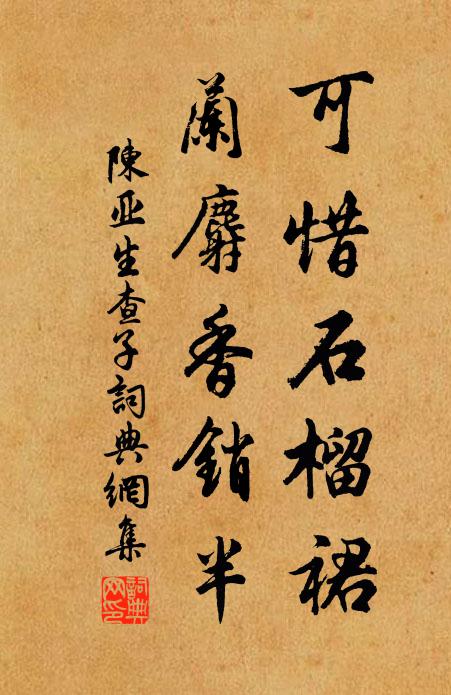 可惜石榴裙
蘭麝香銷半
陳亚生查子詞典網集
詞典
网印